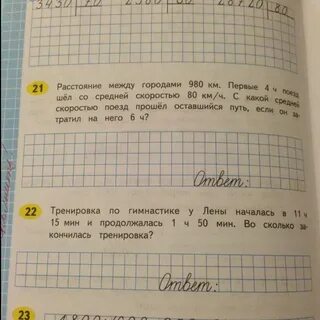 3430 70
80
21
Расстояние между городами 980 км. Первые 4 ч поезд
шёл со средней скоростью 80 км/ч. С какой средней
скоростью поезд прошёл оставшийся путь, если он за-
тратил на него 6 ч?
Ответ:
22
Тренировка по гимнастике у Лены началась в 11 ч
15 мин и продолжалась 1 ч 50 мин. Во сколько за-
кончилась тренировка?
Ответ:
23